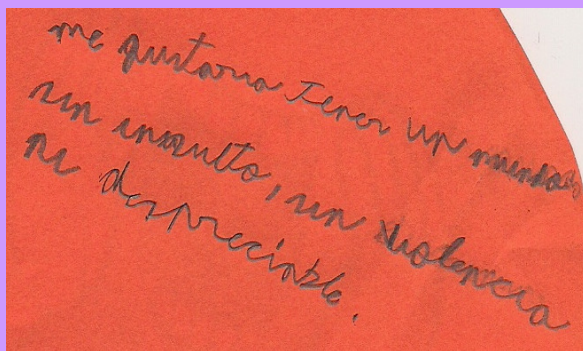 me gustaria tener un mundo
sin insulto, sin violencia
ni despreciable.